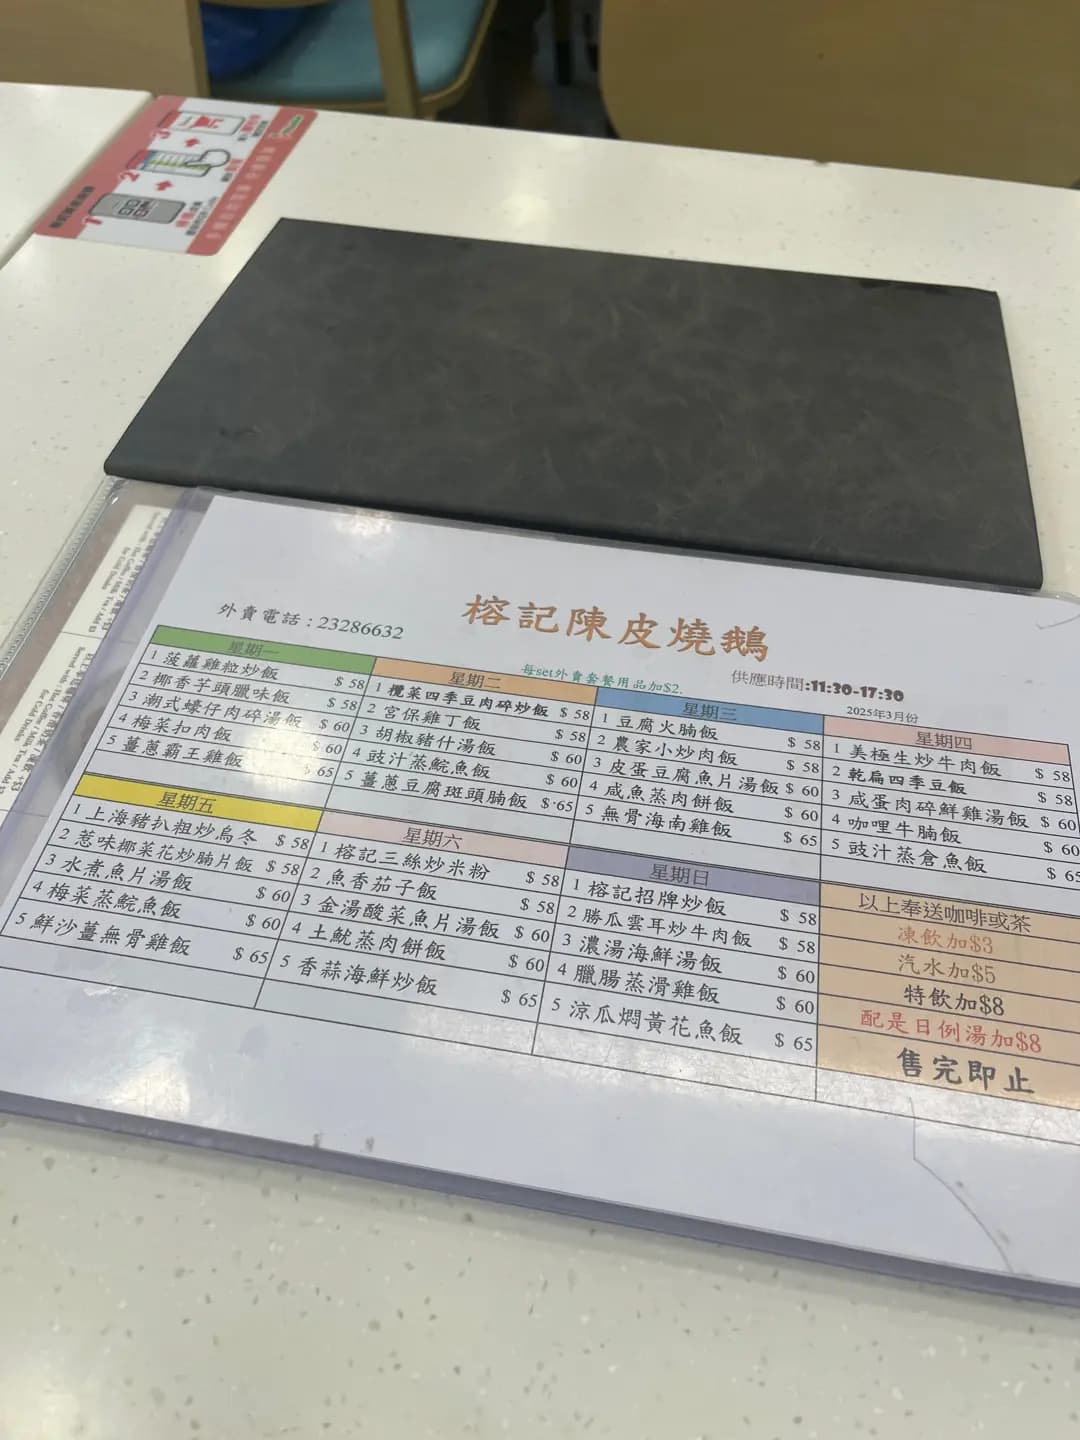 3
2
1
榕記陳皮燒鵝
外賣電話:23286632
每set外賣套餐用品加$2.
供應時間:11:30-17:30
2025年3月份
星期一
1 菠蘿雞粒炒飯 $ 58
2 椰香芋頭臘味飯 $ 58
3 潮式蠔仔肉碎湯飯 $ 60
4 梅菜扣肉飯 $ 60
5 薑蔥霸王雞飯 $ 65
星期二
1 欖菜四季豆肉碎炒飯 $ 58
2 宮保雞丁飯 $ 58
3 胡椒豬什湯飯 $ 60
4 豉汁蒸鯇魚飯 $ 60
5 薑蔥豆腐斑頭腩飯 $ 65
星期三
1 豆腐火腩飯 $ 58
2 農家小炒肉飯 $ 58
3 皮蛋豆腐魚片湯飯 $ 60
4 咸魚蒸肉餅飯 $ 60
5 無骨海南雞飯 $ 65
星期四
1 美極生炒牛肉飯 $ 58
2 乾扁四季豆飯 $ 58
3 咸蛋肉碎鮮雞湯飯 $ 60
4 咖哩牛腩飯 $ 60
5 豉汁蒸倉魚飯 $ 65
星期五
1 上海豬扒粗炒烏冬 $ 58
2 惹味椰菜花炒腩片飯 $ 58
3 水煮魚片湯飯 $ 60
4 梅菜蒸鯇魚飯 $ 60
5 鮮沙薑無骨雞飯 $ 65
星期六
1 榕記三絲炒米粉 $ 58
2 魚香茄子飯 $ 58
3 金湯酸菜魚片湯飯 $ 60
4 土魷蒸肉餅飯 $ 60
5 香蒜海鮮炒飯 $ 65
星期日
1 榕記招牌炒飯 $ 58
2 勝瓜雲耳炒牛肉飯 $ 58
3 濃湯海鮮湯飯 $ 60
4 臘腸蒸滑雞飯 $ 60
5 涼瓜燜黃花魚飯 $ 65
以上奉送咖啡或茶
凍飲加$3
汽水加$5
特飲加$8
配是日例湯加$8
售完即止